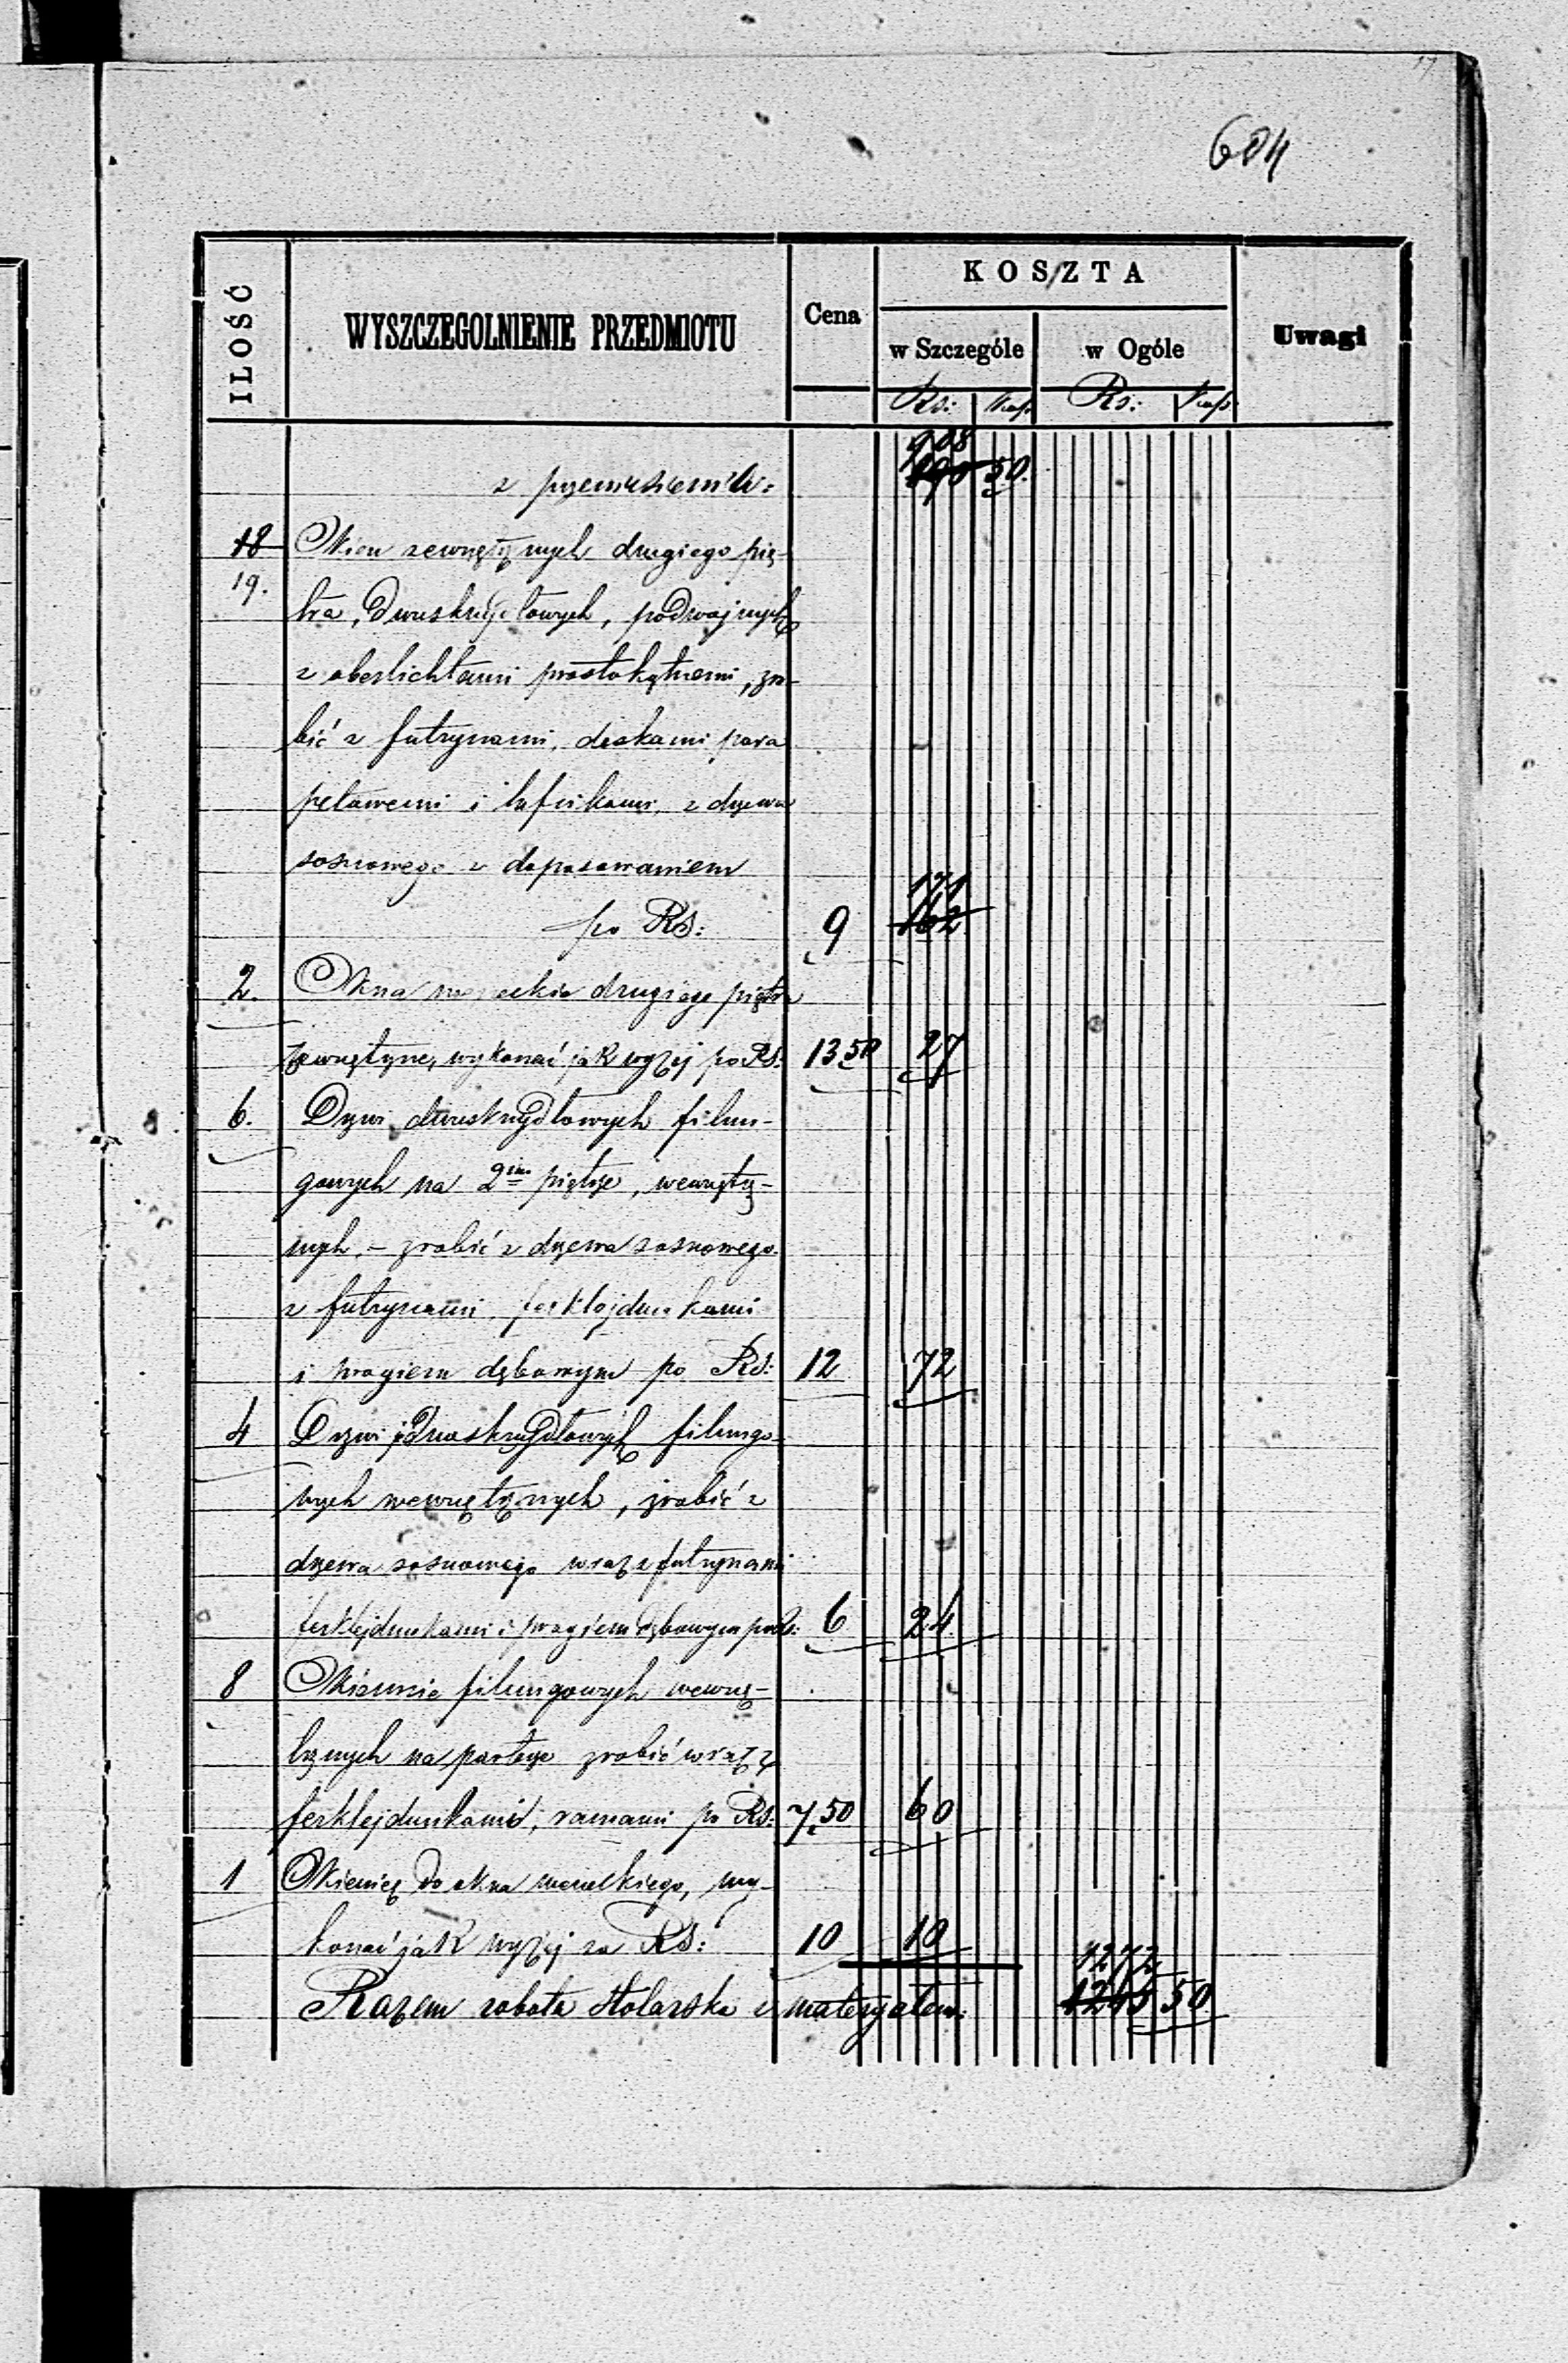 17
604
ILOŚĆ
WYSZCZEGOLNIENIE PRZEDMIOTU
Cena
KOSZTA
w Szczególe
w Ogóle
Uwagi
Rs: Kop. Rs: Kop:
908
890 50.
z przeniesienia:
18 Okien zewnętrznych drugiego pię-
19.
tra, dwuskrzydłowych, podwojnych
z oberlichtami prostokątnemi, zro-
bić z futrynami, deskami para
petowemi i lufcikami, z drzewa
sosnowego z dopasowaniem
171
po Rs: 9 162
2. Okna weneckie drugiego piętra
zewnętrzne, wykonać jak wyżej po Rs: 13 50 27
6. Drzwi dwuskrzydłowych filun-
gowych na 2im piętrze, wewnętrz-
nych, – zrobić z drzewa sosnowego
z futrynami, ferklejdunkami
i progiem dębowym po Rs: 12 72
4 Drzwi jednoskrzydłowych filungo-
wych wewnętrznych, zrobić z
drzewa sosnowego wraz z futrynami
ferklejdunkami i progiem dębowym po Rs: 6 24
8 Okiennic filungowych wewnę-
trznych na parterze zrobić wraz z
ferklejdunkami, ramami po Rs: 7,50 60
1 Okiennicę do okna weneckiego, wy-
konać jak wyżej za Rs: 10 10
1272
Razem robota stolarska z materyałem: 1245 50